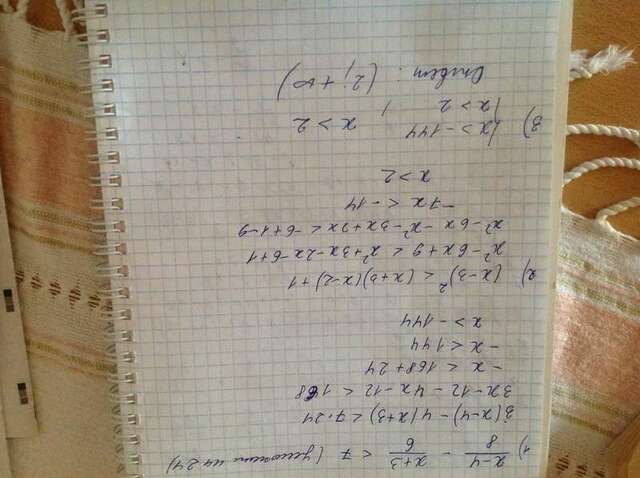 1) x-4/8 - x+3/6 < 7 (умножим на 24)
3(x-4) - 4(x+3) < 7·24
3x-12-4x-12 < 168
-x < 168+24
-x < 144
x > -144
2) (x-3)² < (x+3)(x-2)+1
x²-6x+9 < x²+3x-2x-6+1
x²-6x-x²-3x+2x < -6+1-9
-7x < -14
x > 2
3) {x > -144
{x > 2 , x > 2
Ответ: (2; +∞)